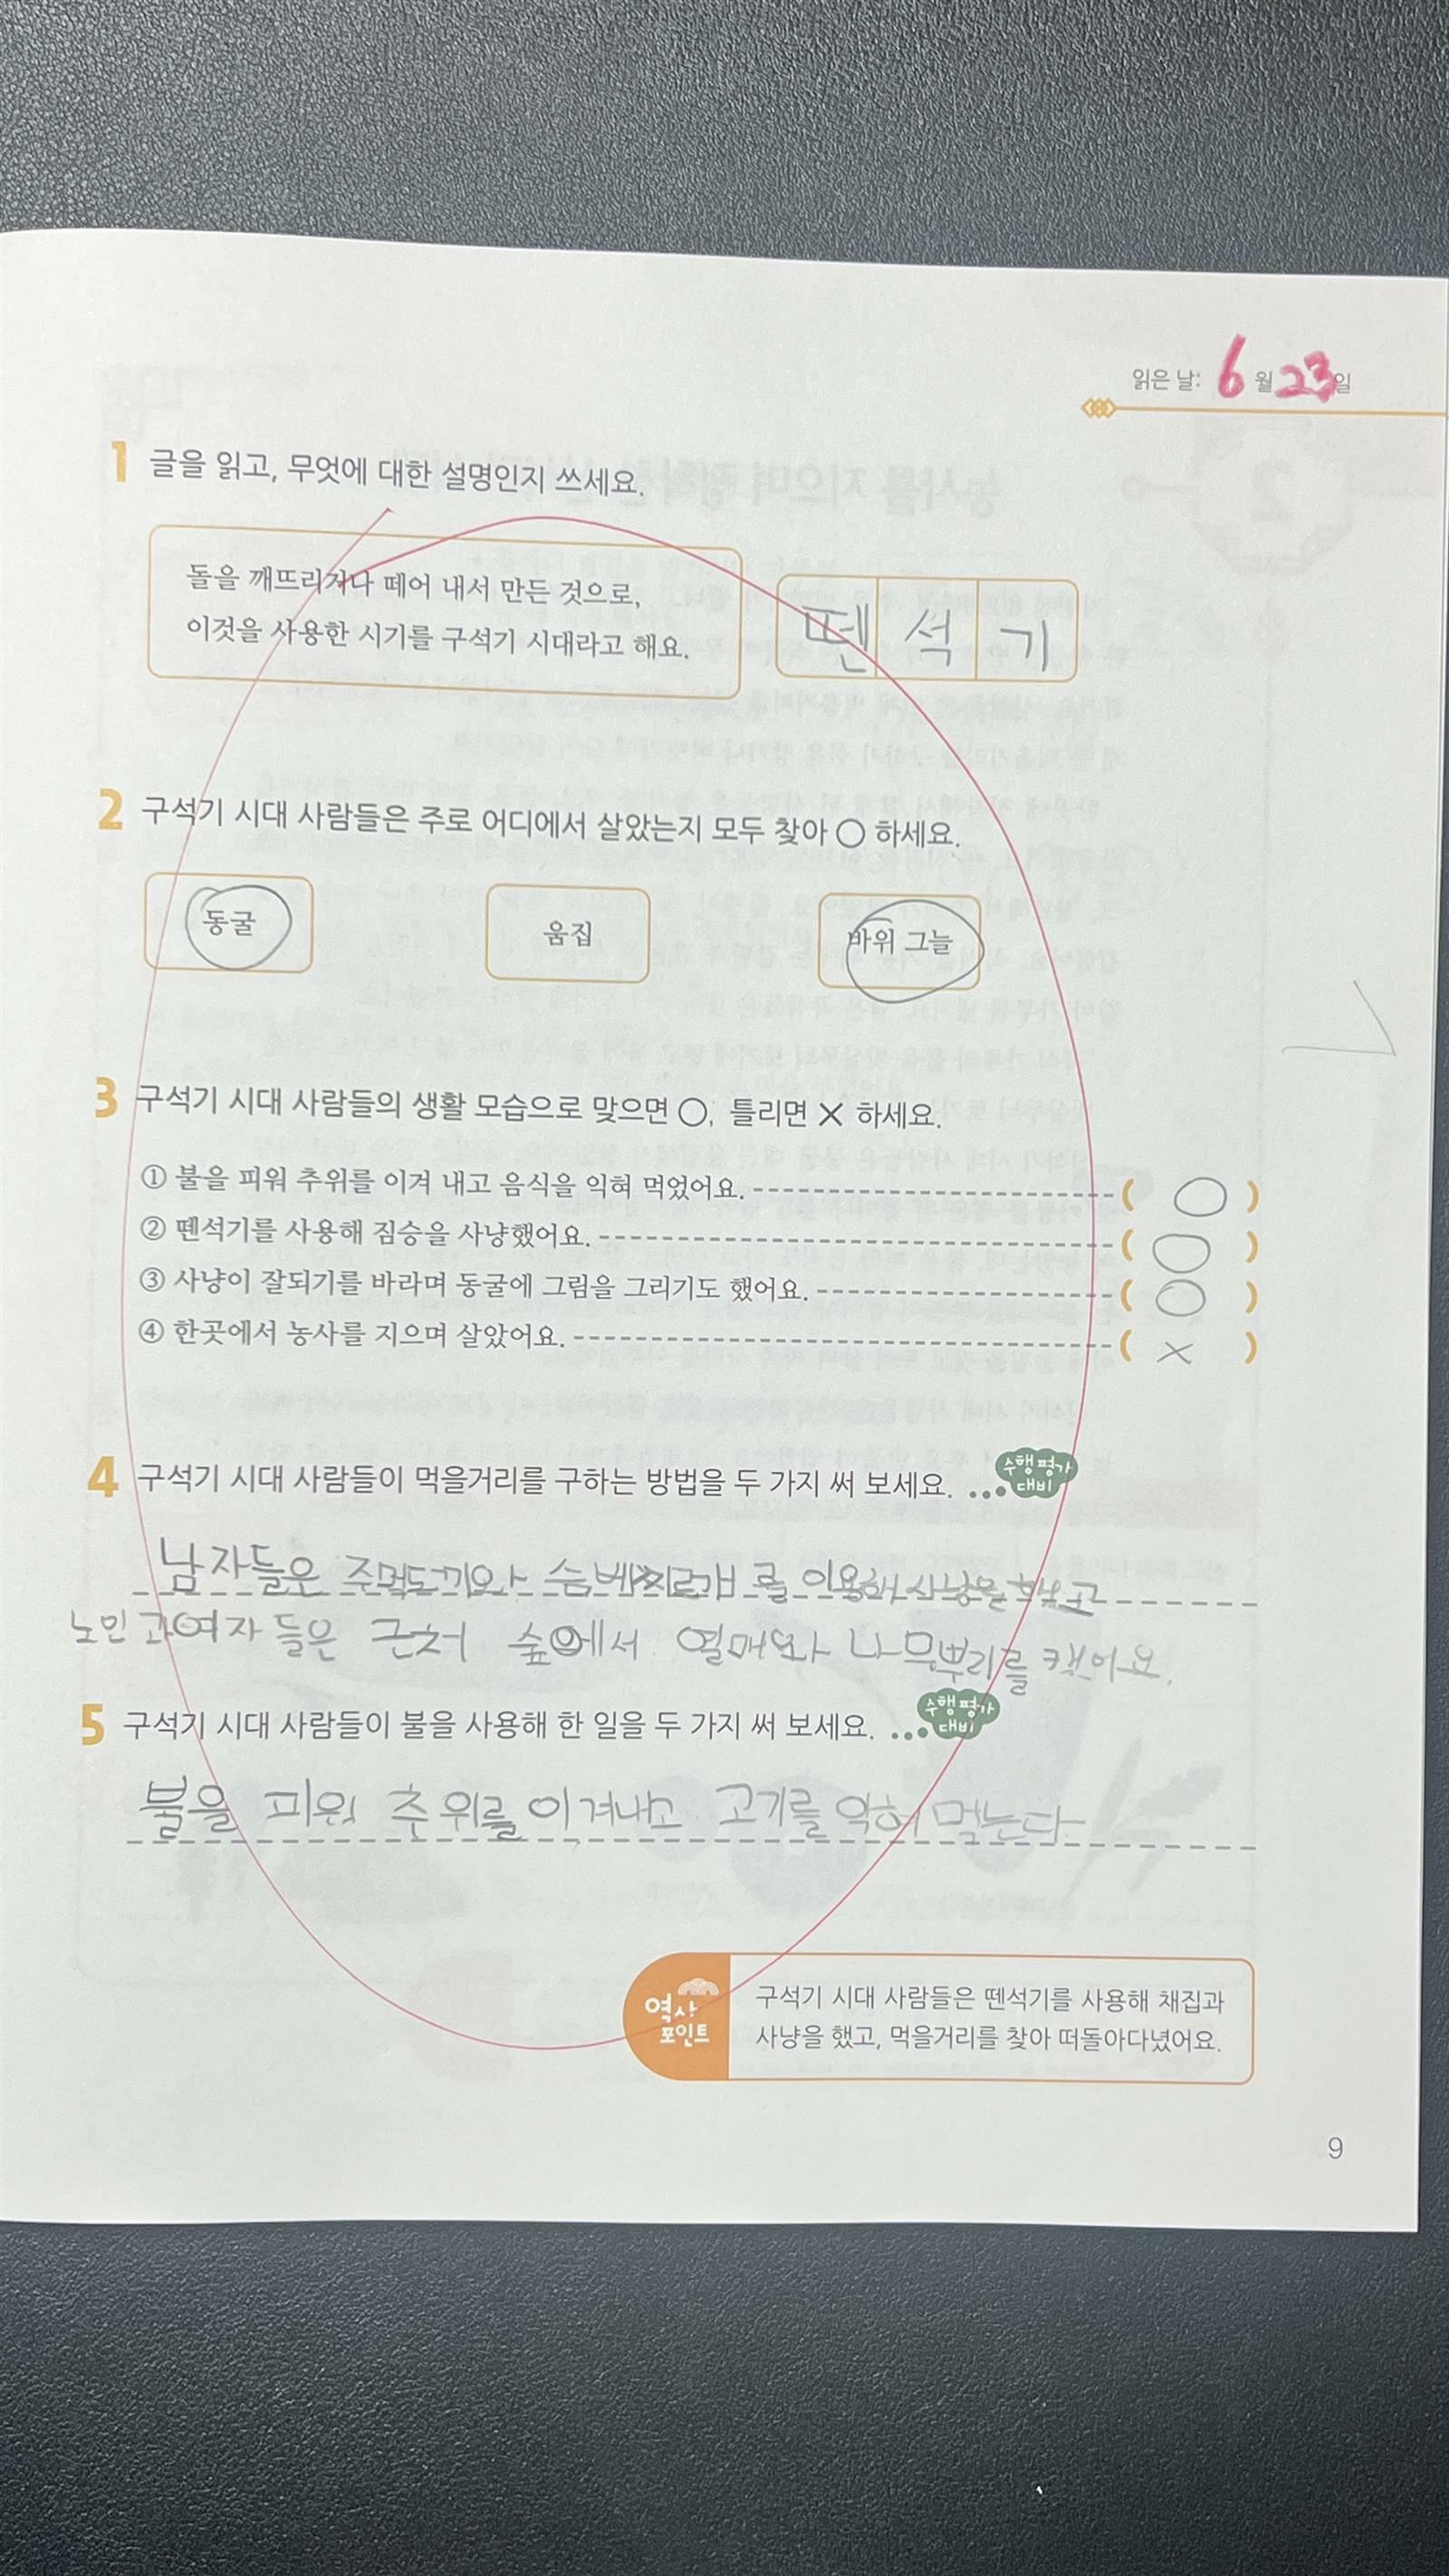 읽은 날: 6월 23일
1 글을 읽고, 무엇에 대한 설명인지 쓰세요.
돌을 깨뜨리거나 떼어 내서 만든 것으로,
이것을 사용한 시기를 구석기 시대라고 해요.
뗀 석 기
2 구석기 시대 사람들은 주로 어디에서 살았는지 모두 찾아 ○ 하세요.
동굴 움집 바위 그늘
3 구석기 시대 사람들의 생활 모습으로 맞으면 ○, 틀리면 × 하세요.
① 불을 피워 추위를 이겨 내고 음식을 익혀 먹었어요. ( ○ )
② 뗀석기를 사용해 짐승을 사냥했어요. ( ○ )
③ 사냥이 잘되기를 바라며 동굴에 그림을 그리기도 했어요. ( ○ )
④ 한곳에서 농사를 지으며 살았어요. ( × )
4 구석기 시대 사람들이 먹을거리를 구하는 방법을 두 가지 써 보세요. 수행 평가 대비
남자들은 주먹도끼와 슴베찌르개를 이용해 사냥을 했고
노인과 여자들은 근처 숲에서 열매와 나무뿌리를 캤어요.
5 구석기 시대 사람들이 불을 사용해 한 일을 두 가지 써 보세요. 수행 평가 대비
불을 피워 추위를 이겨내고 고기를 익혀 먹는다.
역사 포인트
구석기 시대 사람들은 뗀석기를 사용해 채집과
사냥을 했고, 먹을거리를 찾아 떠돌아다녔어요.
9